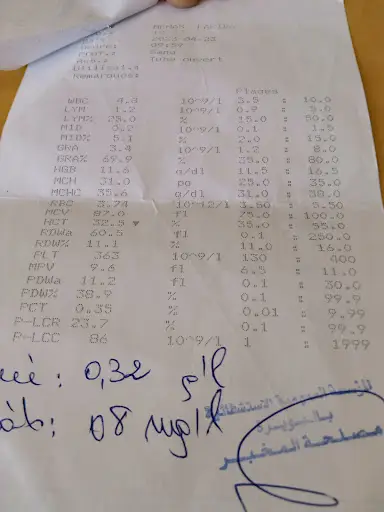 Plages
WBC 4.8 10^9/l 3.5 : 10.0
LYM 1.2 10^9/l 0.9 : 5.0
LYM% 25.0 % 15.0 : 50.0
MID 0.2 10^9/l 0.1 : 1.5
MID% 5.1 % 2.0 : 15.0
GRA 3.4 10^9/l 1.2 : 8.0
GRA% 69.9 % 35.0 : 80.0
HGB 11.6 g/dl 11.5 : 16.5
MCH 31.0 pg 25.0 : 35.0
MCHC 35.6 g/dl 31.0 : 38.0
RBC 3.74 10^12/l 3.50 : 5.50
MCV 87.0 fl 75.0 : 100.0
HCT 32.5 ▼ % 35.0 : 55.0
RDWa 60.5 fl 0.1 : 250.0
RDW% 11.1 % 11.0 : 16.0
PLT 363 10^9/l 130 : 400
MPV 9.6 fl 6.5 : 11.0
PDWa 11.2 fl 0.1 : 30.0
PDW% 38.9 % 0.1 : 99.9
PCT 0.35 % 0.01 : 9.99
P-LCR 23.7 % 0.1 : 99.9
P-LCC 86 10^9/l 1 : 1999
: 0,32 g/l
: 08 mg/l
مصلحة المختبر